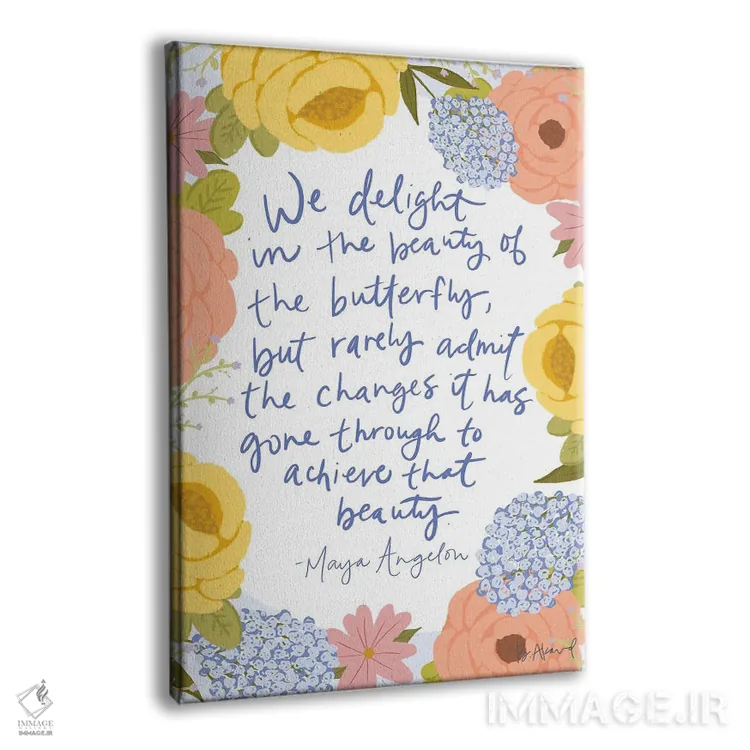 We delight
in the beauty of
the butterfly,
but rarely admit
the changes it has
gone through to
achieve that
beauty.
-Maya Angelou
IMMAGE
IMMAGE.IR
IMMAGE.IR